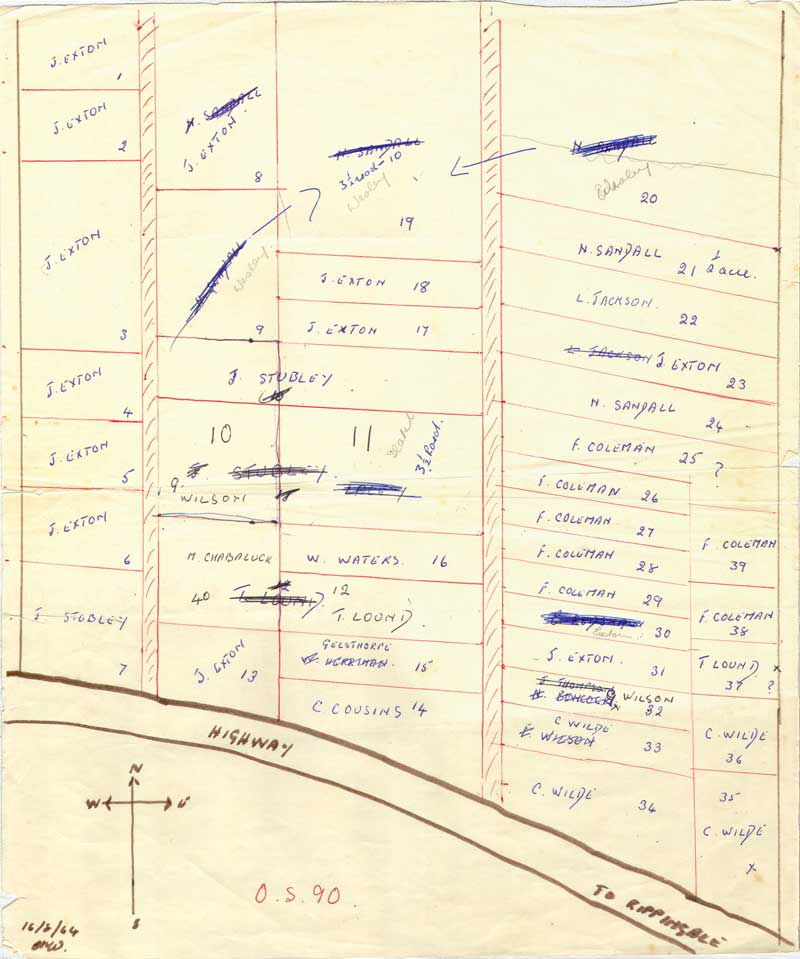 J. EXTON
1
J. EXTON
2
J. EXTON
3
J. EXTON
4
J. EXTON
5
J. EXTON
6
J. STUBLEY
7
N. SANDALL
J. EXTON.
8
Wesley
9
J. STUBLEY
10
10
STUBLEY
9.
WILSON
M CHABALUCK
40
T LOUND
12
J. EXTON 13
N. SANDALL
3½ rood - 10
Wesley
19
J. EXTON 18
J. EXTON 17
11
3½ Rood.
LACEY
W. WATERS. 16
12
T. LOUND.
GELSTHORPE
HERRIMAN. 15
C COUSINS 14
N. SANDALL
20
N. SANDALL 21 ½ acre.
L. JACKSON.
22
L JACKSON J. EXTON
23
N. SANDALL
24
F. COLEMAN
25 ?
F. COLEMAN 26
F. COLEMAN
27
F. COLEMAN
28
F. COLEMAN
29
30
J. EXTON. 31
J THOMPSON
WILSON
32
C WILDE
WILSON 33
C. WILDE 34
F. COLEMAN
39
F. COLEMAN
38
T LOUND x
37 ?
C. WILDE
36
35
C. WILDE
x
HIGHWAY
TO RIPPINGALE
N
W E
S
O.S.90.
16/5/64